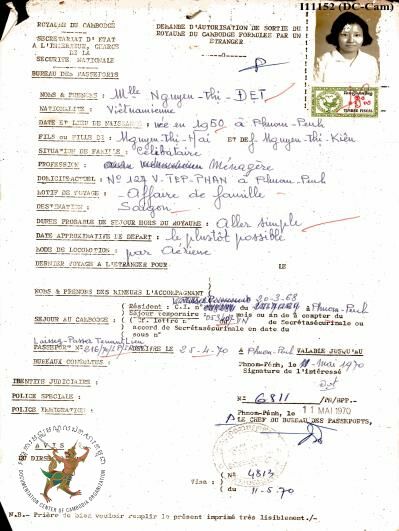 111152 (DC-Cam)
ROYAUME DU CAMBODGE
DEMANDE D'AUTORISATION DE SORTIE DU
ROYAUME DU CAMBODGE FORMULEE PAR UN
ETRANGER
SECRETARIAT D'ETAT
A L'INTERIEUR, CHARGE
DE LA
SECURITE NATIONALE
BUREAU DES PASSEPORTS
NOMS & PRENOMS : Mlle Nguyen-Thi-DET
NATIONALITE : Vietnamienne
DATE ET LIEU DE NAISSANCE : née en 1950 à Phnom-Penh
FILS ou FILLE DE : Nguyen-Thi-Hai ET de Nguyen-Thi-Kiên
SITUATION DE FAMILLE : Célibataire
PROFESSION : Ménagère
DOMICILE ACTUEL : N° 127 V. TEP-PHAN à Phnom-Penh
MOTIF DE VOYAGE : Affaire de famille
DESTINATION : Saigon
DUREE PROBABLE DE SEJOUR HORS DU ROYAUME : Aller simple
DATE APPROXIMATIVE DE DEPART : le plustôt possible
MODE DE LOCOMOTION : par Aérienne
DERNIER VOYAGE A L'ETRANGER POUR LE
NOMS & PRENOMS DES MINEURS L'ACCOMPAGNANT
20-3-68
Résident : C.I. N° à Phnom-Penh
SEJOUR AU CAMBODGE : Séjour temporaire mois ou an à compter du
lettre n° de Secrétaséurinale ou
accord de Secrétaséurinale en date du
sous n°
Laissez-Passer Tenant Lieu
PASSEPORT N° DELIVRE LE 25-4-70 à Phnom-Penh VALABLE JUSQU'AU
BUREAUX CONSULTES : Phnom-Penh, le 11-mai 1970
Signature de l'Intéressé
IDENTITE JUDICIAIRE :
POLICE SPECIALE :
N° 6811 /PN/BPP.-
POLICE IMMIGRATION :
Phnom-Penh, le 11 MAI 1970
LE CHEF DU BUREAU DES PASSEPORTS,
AVIS
DU DIRE
DOCUMENTATION CENTER OF CAMBODIA ORGANIZATION
Visa : ( N° 4813
( du 11-5-70
N.B.- Prière de bien vouloir remplir le présent imprimé très lisiblement./-